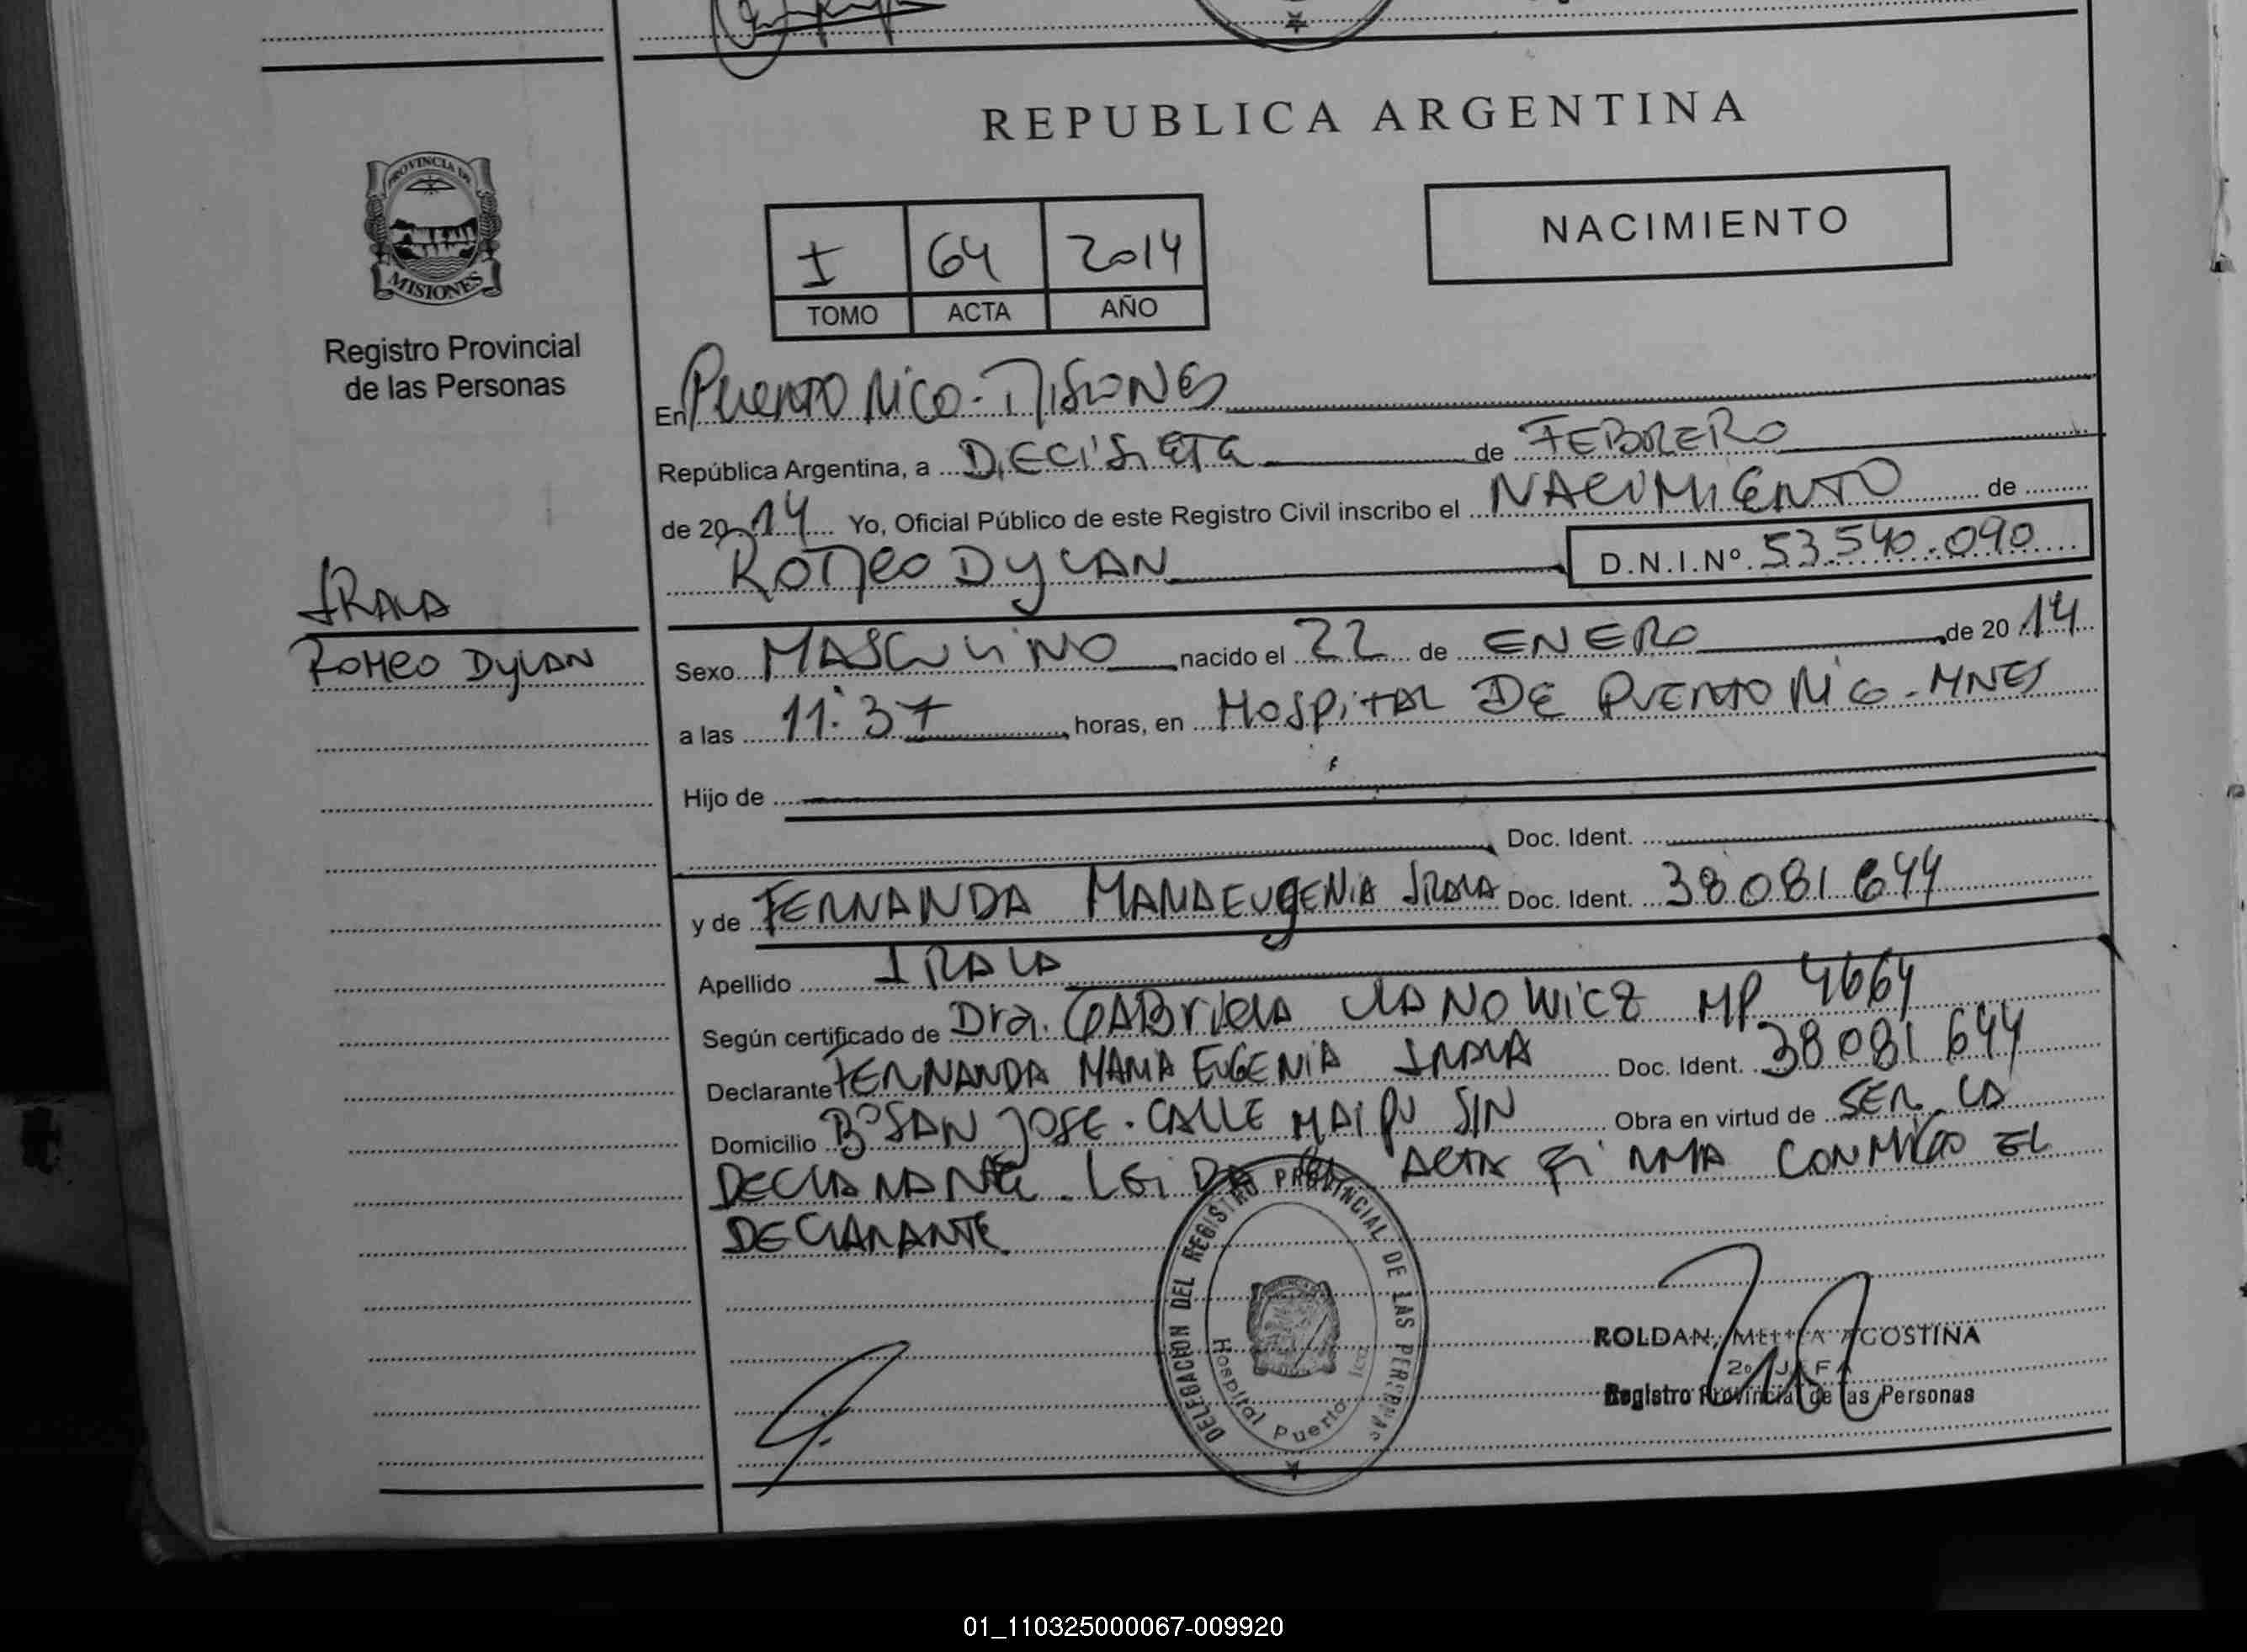 REPUBLICA ARGENTINA
PROVINCIA DE
MISIONES
Registro Provincial
de las Personas
NACIMIENTO
I 64 2014
TOMO ACTA AÑO
En PUERTO RICO - MISIONES
República Argentina, a DIECISIETE de FEBRERO
de 2014 Yo, Oficial Público de este Registro Civil inscribo el NACIMIENTO de
ROMEO DYLAN D.N.I.Nº 53.540.090
IRALA
ROMEO DYLAN
Sexo MASCULINO nacido el 22 de ENERO de 2014
a las 11:37 horas, en HOSPITAL DE PUERTO RICO - MNES
Hijo de
Doc. Ident.
y de FERNANDA MARIA EUGENIA IRALA Doc. Ident. 38 081 644
Apellido IRALA
Según certificado de Dra. GABRIELA MP 4664
Declarante FERNANDA MARIA EUGENIA IRALA Doc. Ident. 38 081 644
Domicilio Bº SAN JOSE - CALLE MAIPU S/N Obra en virtud de SER LA
DECLARANTE. LEIDA EL ACTA FIRMA CONMIGO EL
DECLARANTE
DELEGACION DEL REGISTRO PROVINCIAL DE LAS PERSONAS
Hospital Puerto Rico
ROLDAN, AGOSTINA
2º JEFA
Registro Provincial de las Personas
01_110325000067-009920